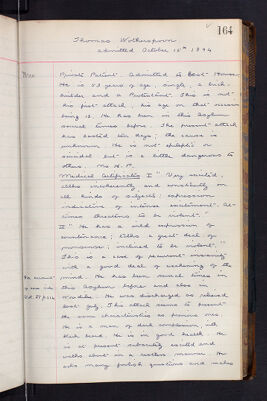 164
Thomas Wotherspoon
admitted October 15th 1894
Private Patient. Admitted to East House.
He is 53 years of age, single, a
builder and a Protestant. This is not
his first attack, his age on that occasion
being 18. He has been in this Asylum
several times before. The present attack
has lasted ten days; the cause is
unknown. He is not epileptic or
suicidal but is a little dangerous to
others.
Medical Certificates I " Very excited,
talks incoherently and constantly on
all kinds of subjects; expression
indicative of intense excitement. At
times threatens to be violent."
II " He has a wild expression of
countenance; talks a great deal of
nonsense; inclined to be violent."
This is a case of recurrent insanity
with a good deal of weakening of the
mind. He has been several times in
this Asylum before and also in
He was discharged as relieved
last July. This attack seems to present
the same characteristics as previous ones.
He is a man of dark complexion, with
black beard. He is in good health. He
is at present substantially excited and
walks about in a restless manner. He
asks many foolish questions and makes
For account
of case vide